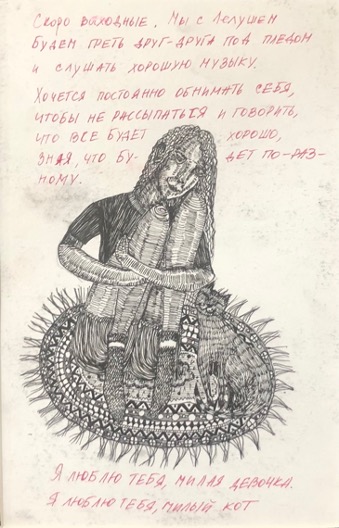 Скоро выходные. Мы с Лелушем
будем греть друг-друга под пледом
и слушать хорошую музыку.
Хочется постоянно обнимать себя,
чтобы не рассыпаться и говорить,
что все будет хорошо,
зная, что бу- дет по-раз-
ному.
Я люблю тебя, милая девочка.
Я люблю тебя, милый кот